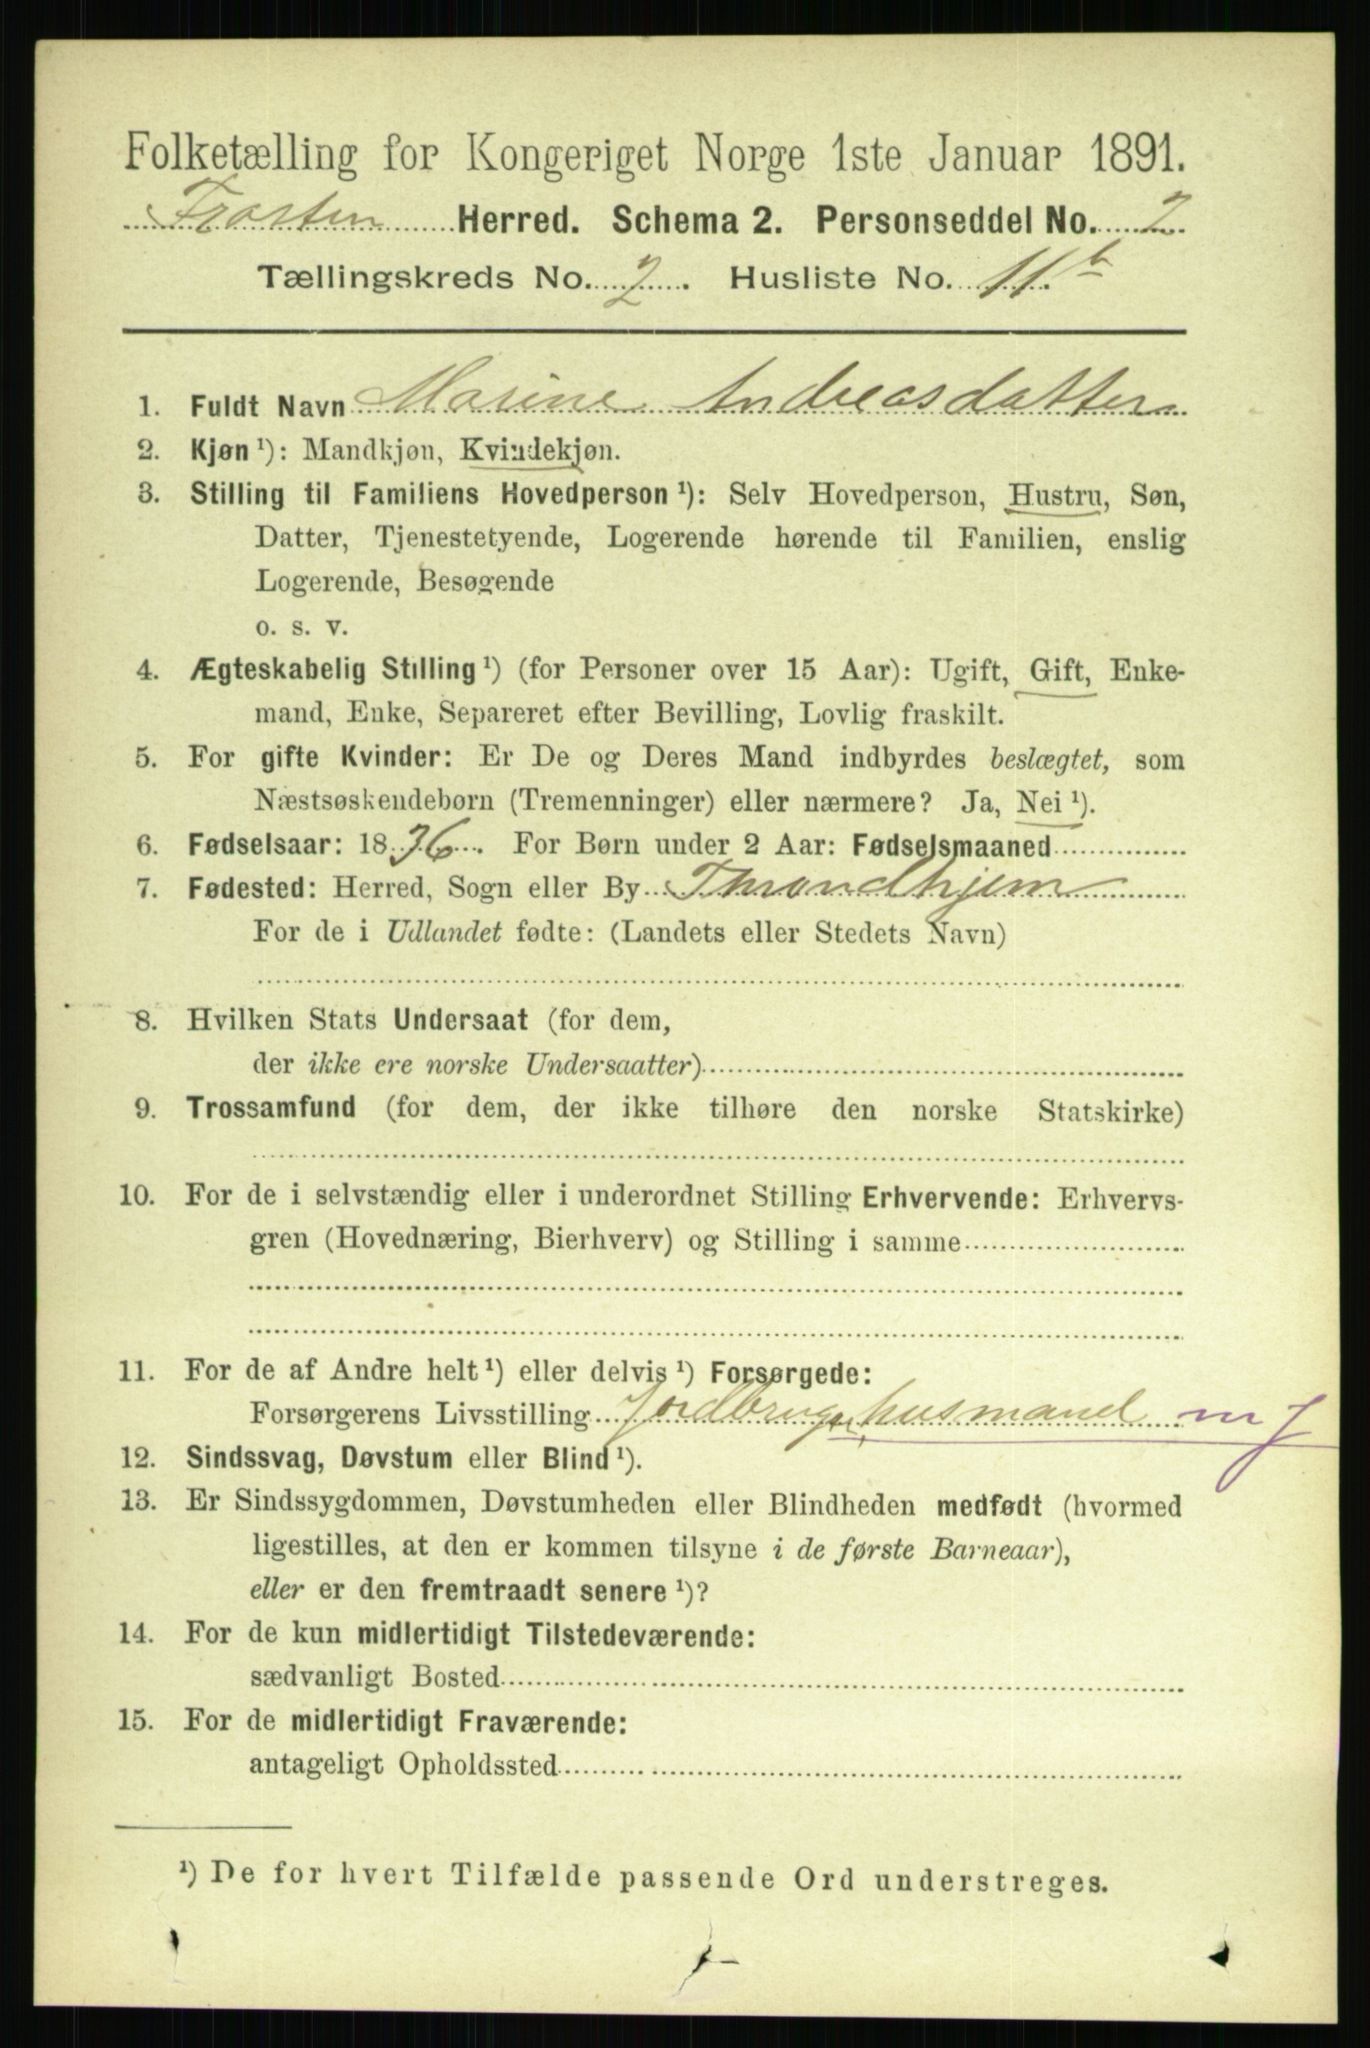 Folketælling for Kongeriget Norge 1ste Januar 1891.
Frosten Herred. Schema 2. Personseddel No. 2
Tællingskreds No. 2. Husliste No. 11b.
1. Fuldt Navn Marine Andreasdatter
2. Kjøn¹): Mandkjøn, Kvindekjøn.
3. Stilling til Familiens Hovedperson¹): Selv Hovedperson, Hustru, Søn,
Datter, Tjenestetyende, Logerende hørende til Familien, enslig
Logerende, Besøgende
o. s. v.
4. Ægteskabelig Stilling¹) (for Personer over 15 Aar): Ugift, Gift, Enke-
mand, Enke, Separeret efter Bevilling, Lovlig fraskilt.
5. For gifte Kvinder: Er De og Deres Mand indbyrdes beslægtet, som
Næstsøskendebørn (Tremenninger) eller nærmere? Ja, Nei¹).
6. Fødselsaar: 1836. For Børn under 2 Aar: Fødselsmaaned
7. Fødested: Herred, Sogn eller By Throndhjem
For de i Udlandet fødte: (Landets eller Stedets Navn)
8. Hvilken Stats Undersaat (for dem,
der ikke ere norske Undersaatter)
9. Trossamfund (for dem, der ikke tilhøre den norske Statskirke)
10. For de i selvstændig eller i underordnet Stilling Erhvervende: Erhvervs-
gren (Hovednæring, Bierhverv) og Stilling i samme
11. For de af Andre helt¹) eller delvis¹) Forsørgede:
Forsørgerens Livsstilling Jordbruger, husmand m J
12. Sindssvag, Døvstum eller Blind¹).
13. Er Sindssygdommen, Døvstumheden eller Blindheden medfødt (hvormed
ligestilles, at den er kommen tilsyne i de første Barneaar),
eller er den fremtraadt senere¹)?
14. For de kun midlertidigt Tilstedeværende:
sædvanligt Bosted
15. For de midlertidigt Fraværende:
antageligt Opholdssted
¹) De for hvert Tilfælde passende Ord understreges.